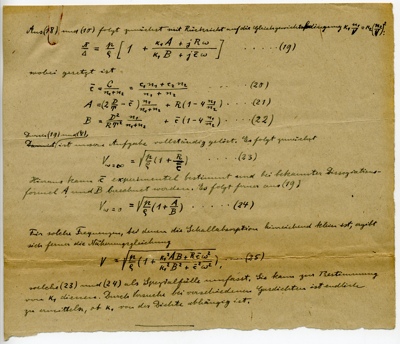 Aus (18) und (15) folgt zunächst mit Rücksicht auf die Gleichgewichtsbedingung
π/Δ = p/ζ [ 1 + (κ₁A + jRω)/(κ₁B + jc̄ω) ] . . . . . (19)
wobei gesetzt ist
c̄ = C/(n₁+n₂) = (c₁n₁ + c₂n₂)/(n₁ + n₂) . . . . . (20)
. . . . (21)
. . . . . (22)
Durch (19) und
ist unsere Aufgabe vollständig gelöst. Es folgt zunächst
V ω=∞ = √(p/ζ (1 + R/c̄)) . . . . . (23)
Hieraus kann c̄ experimentell bestimmt und bei bekannter Dissoziations-
formel A und B berechnet werden. Es folgt ferner aus (19)
= √(p/ζ (1 + A/B)) . . . . . (24)
Für solche Frequenzen, bei denen die Schallabsorption hinreichend klein ist, ergibt
sich ferner die Näherungsgleichung
V = √(p/ζ (1 + (κ₁²AB + Rc̄ω²)/(κ₁²B² + c̄²ω²))), (25)
welche (23) und (24) als Spezialfälle umfasst. Sie kann zur Bestimmung
von κ₁ dienen. Durch Versuche bei verschiedenen Gasdichten ist endlich
zu ermitteln, ob κ₁ von der Dichte abhängig ist.